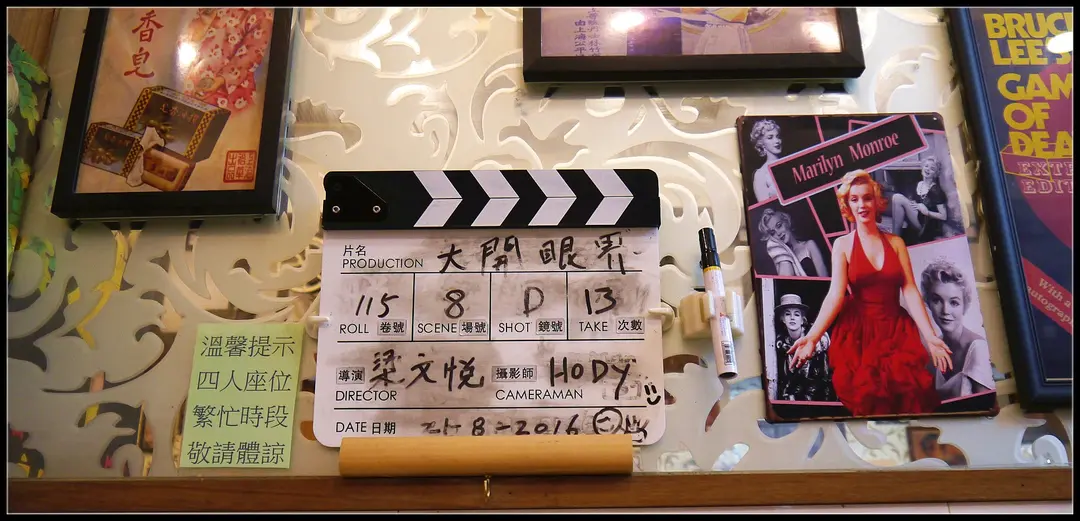 香皂
片名
PRODUCTION 大開眼界
115 8 D 13
ROLL 卷號 SCENE 場號 SHOT 鏡號 TAKE 次數
導演 梁文悅 攝影師 HODY
DIRECTOR CAMERAMAN
DATE 日期 21-8-2016
溫馨提示
四人座位
繁忙時段
敬請體諒
Marilyn Monroe
BRUCE
LEE'S
GAM
OF
DEA
EXTE
EDIT
With a